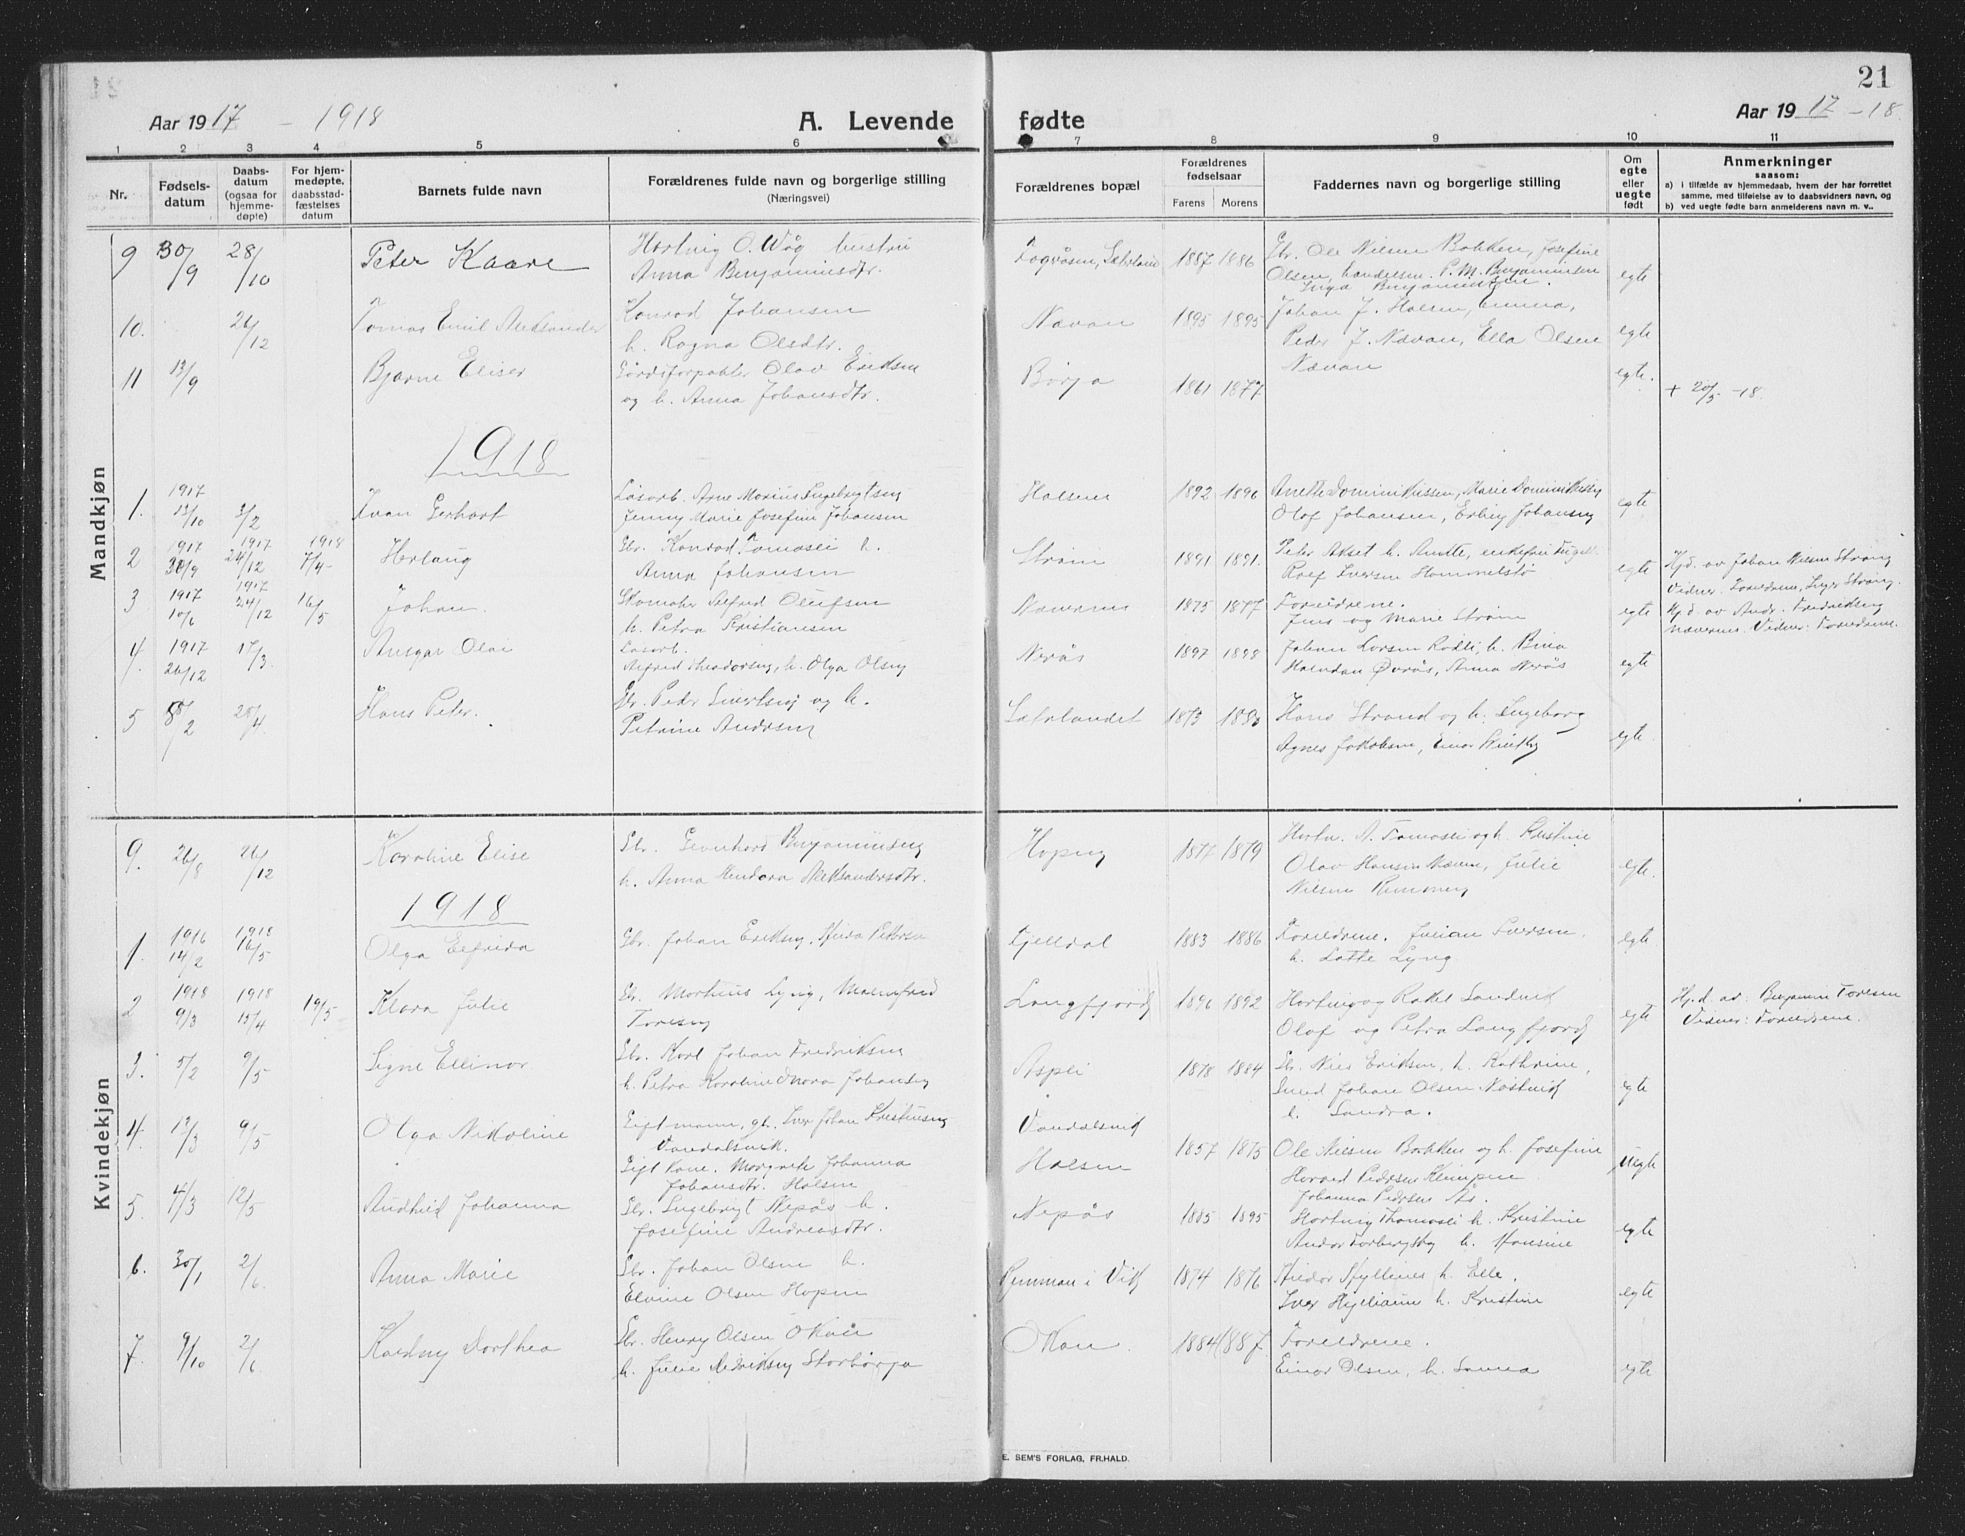 21
Aar 1917 - 1918
A. Levende fødte
Aar 1917 - 18
1 2 3 4 5 6 7 8 9 10 11
Nr.
Fødsels-
datum
Daabs-
datum
(ogsaa for
hjemme-
døpte)
For hjem-
medøpte,
daabsstad-
fæstelses
datum
Barnets fulde navn
Forældrenes fulde navn og borgerlige stilling
(Næringsvei)
Forældrenes bopæl
Forældrenes
fødselsaar
Farens Morens
Faddernes navn og borgerlige stilling
Om
egte
eller
uegte
født
Anmerkninger
saasom:
a) i tilfælde av hjemmedaab, hvem der har forrettet
samme, med tilføielse av to daabsvidners navn, og
b) ved uegte fødte barn anmelderens navn m. v..
Mandkjøn
9 30/9 28/10 Peter Kaare
Hartvig O. Våg hustru
Anna Benjaminsdtr.
1887 1886
Gbr. Ole Nielsen Bakken, Josefine
Olsen, handelsm. P. M. Benjaminsen
Inga Benjaminsen.
egte
10. 26/12 Tomas Emil Aleksander
Konrad Johansen
h. Ragna Olsdtr.
Nævan 1895 1895
Johan J. Halsen, Emma,
Peder J. Nævan, Ella Olsen
Nævan
egte
11 13/9 Bjarne Eliser
Gårdsforpakter Olav Eriksen
og h. Anna Johansdtr.
Børja 1861 1877
egte.
+ 20/5 -18.
1918
1. 1917 13/10 3/2 Ivan Gerhart
Løsarb. Arne Marius Ingebrigtsen
Jenny Marie Josefine Johansen
Halsen 1892 1896
Anette Dominikussen, Marie Dominikussen
Olaf Johansen, Johansen
egte
2 1917 30/9 1917 24/12 1918 7/4 Herlaug
Gbr. Konrad Tomasli h.
Anna Johansen
Strøm 1891 1891.
Peter Akset h. Anette,
Rolf Iversen Hommelstø
egte
Hj.d. av Johan Nilsen Strøm
Vidner: Forældrene, Inger Strøm.
3 1917 10/6 1917 24/12 16/5 Johan.
Skomaker Alfred Olufsen
h. Petra Kristiansen
Nævernes 1875 1877
Forældrene.
Jens og Marie Strøm
egte
Hj.d. av Andr. Fredriksen
Nævernes. Vidner: Forældrene.
4. 1917 26/12 17/3. Ansgar Olai
Løsarb.
Alfred Theodorsen, h. Olga Olsen
Nerås 1897 1898
Johan Larsen Rødli, h. Bina
Halvdan Øverås, Anna Nerås
egte
5 8/2 20/4. Hans Peter.
Gbr. Peder Sivertsen og h.
Petrine Andersen
Sætrlandet 1873
Hans Strand og h. Ingeborg
Agnes Jakobsen, Einar
egte.
Kvindekjøn
9. 26/8 26/12 Karoline Elise
Gbr. Leonhard Benjaminsen
h. Anna Aleksandersdtr.
Hopen 1877 1879
Hartv. A. Tomasli og h. Kristine
Olav Hansen Nævan, Julie
Nilsen
egte.
1918
1. 1916 14/2 1918 16/5 Olga Elfrida
Gbr. Johan Eriksen, Petersen
Fjelldal 1883 1886
Forældrene. Julian Iversen.
h. Lotte Lyng
egte
2 1918 9/3 1918 15/4 19/5 Klara Julie
Gbr. Martinus Lyng, Malmfrid
Toresen
Langfjord 1896 1892
Hartvig og Rakel Sandvik
Olaf og Petra Langfjord
egte
Hj.d. av: Benjamin Toresen
Vidner: Forældrene.
3. 5/2 9/5 Signe Ellinor
Gbr. Karl Johan Fredriksen
h. Petra Karoline Johansen
Aspli 1878 1884
Gbr. Nils Eriksen, h. Kathrine,
Smed Johan Olsen Næstvik
h. Sandra.
egte
4. 12/3 9/5 Olga Nikoline
Gift mann, gb. Iver Johan Kristensen
Vandalsvik.
Gift Kone. Margrete Johanna
Johansdtr. Halsen
Vandalsvik
Halsen
1857 1875
Ole Nielsen Bakken og h. Josefine
Havard Pedersen
Johanna Pedersen Ås.
uegte
5. 4/3 12/5 Audhild Johanna
Gbr. Ingebrigt Nepås h.
Josefine Andreasdtr.
Nepås 1885 1895
Hartvig Thomasli h. Kristine
h. Hansine
egte
6. 30/1 2/6 Anna Marie
Gbr. Johan Olsen h.
Elvine Olsen Hopen
i Vik 1874 1876
h. Elle.
Iver h. Kristine
egte
7. 9/10 2/6 Dorthea
Gbr. Henry Olsen Okan
h. Julie Storbørja
Okan. 1884 1887
Forældrene.
Einar Olsen, h. Sanna
egte
E. SEM'S FORLAG, FR.HALD.